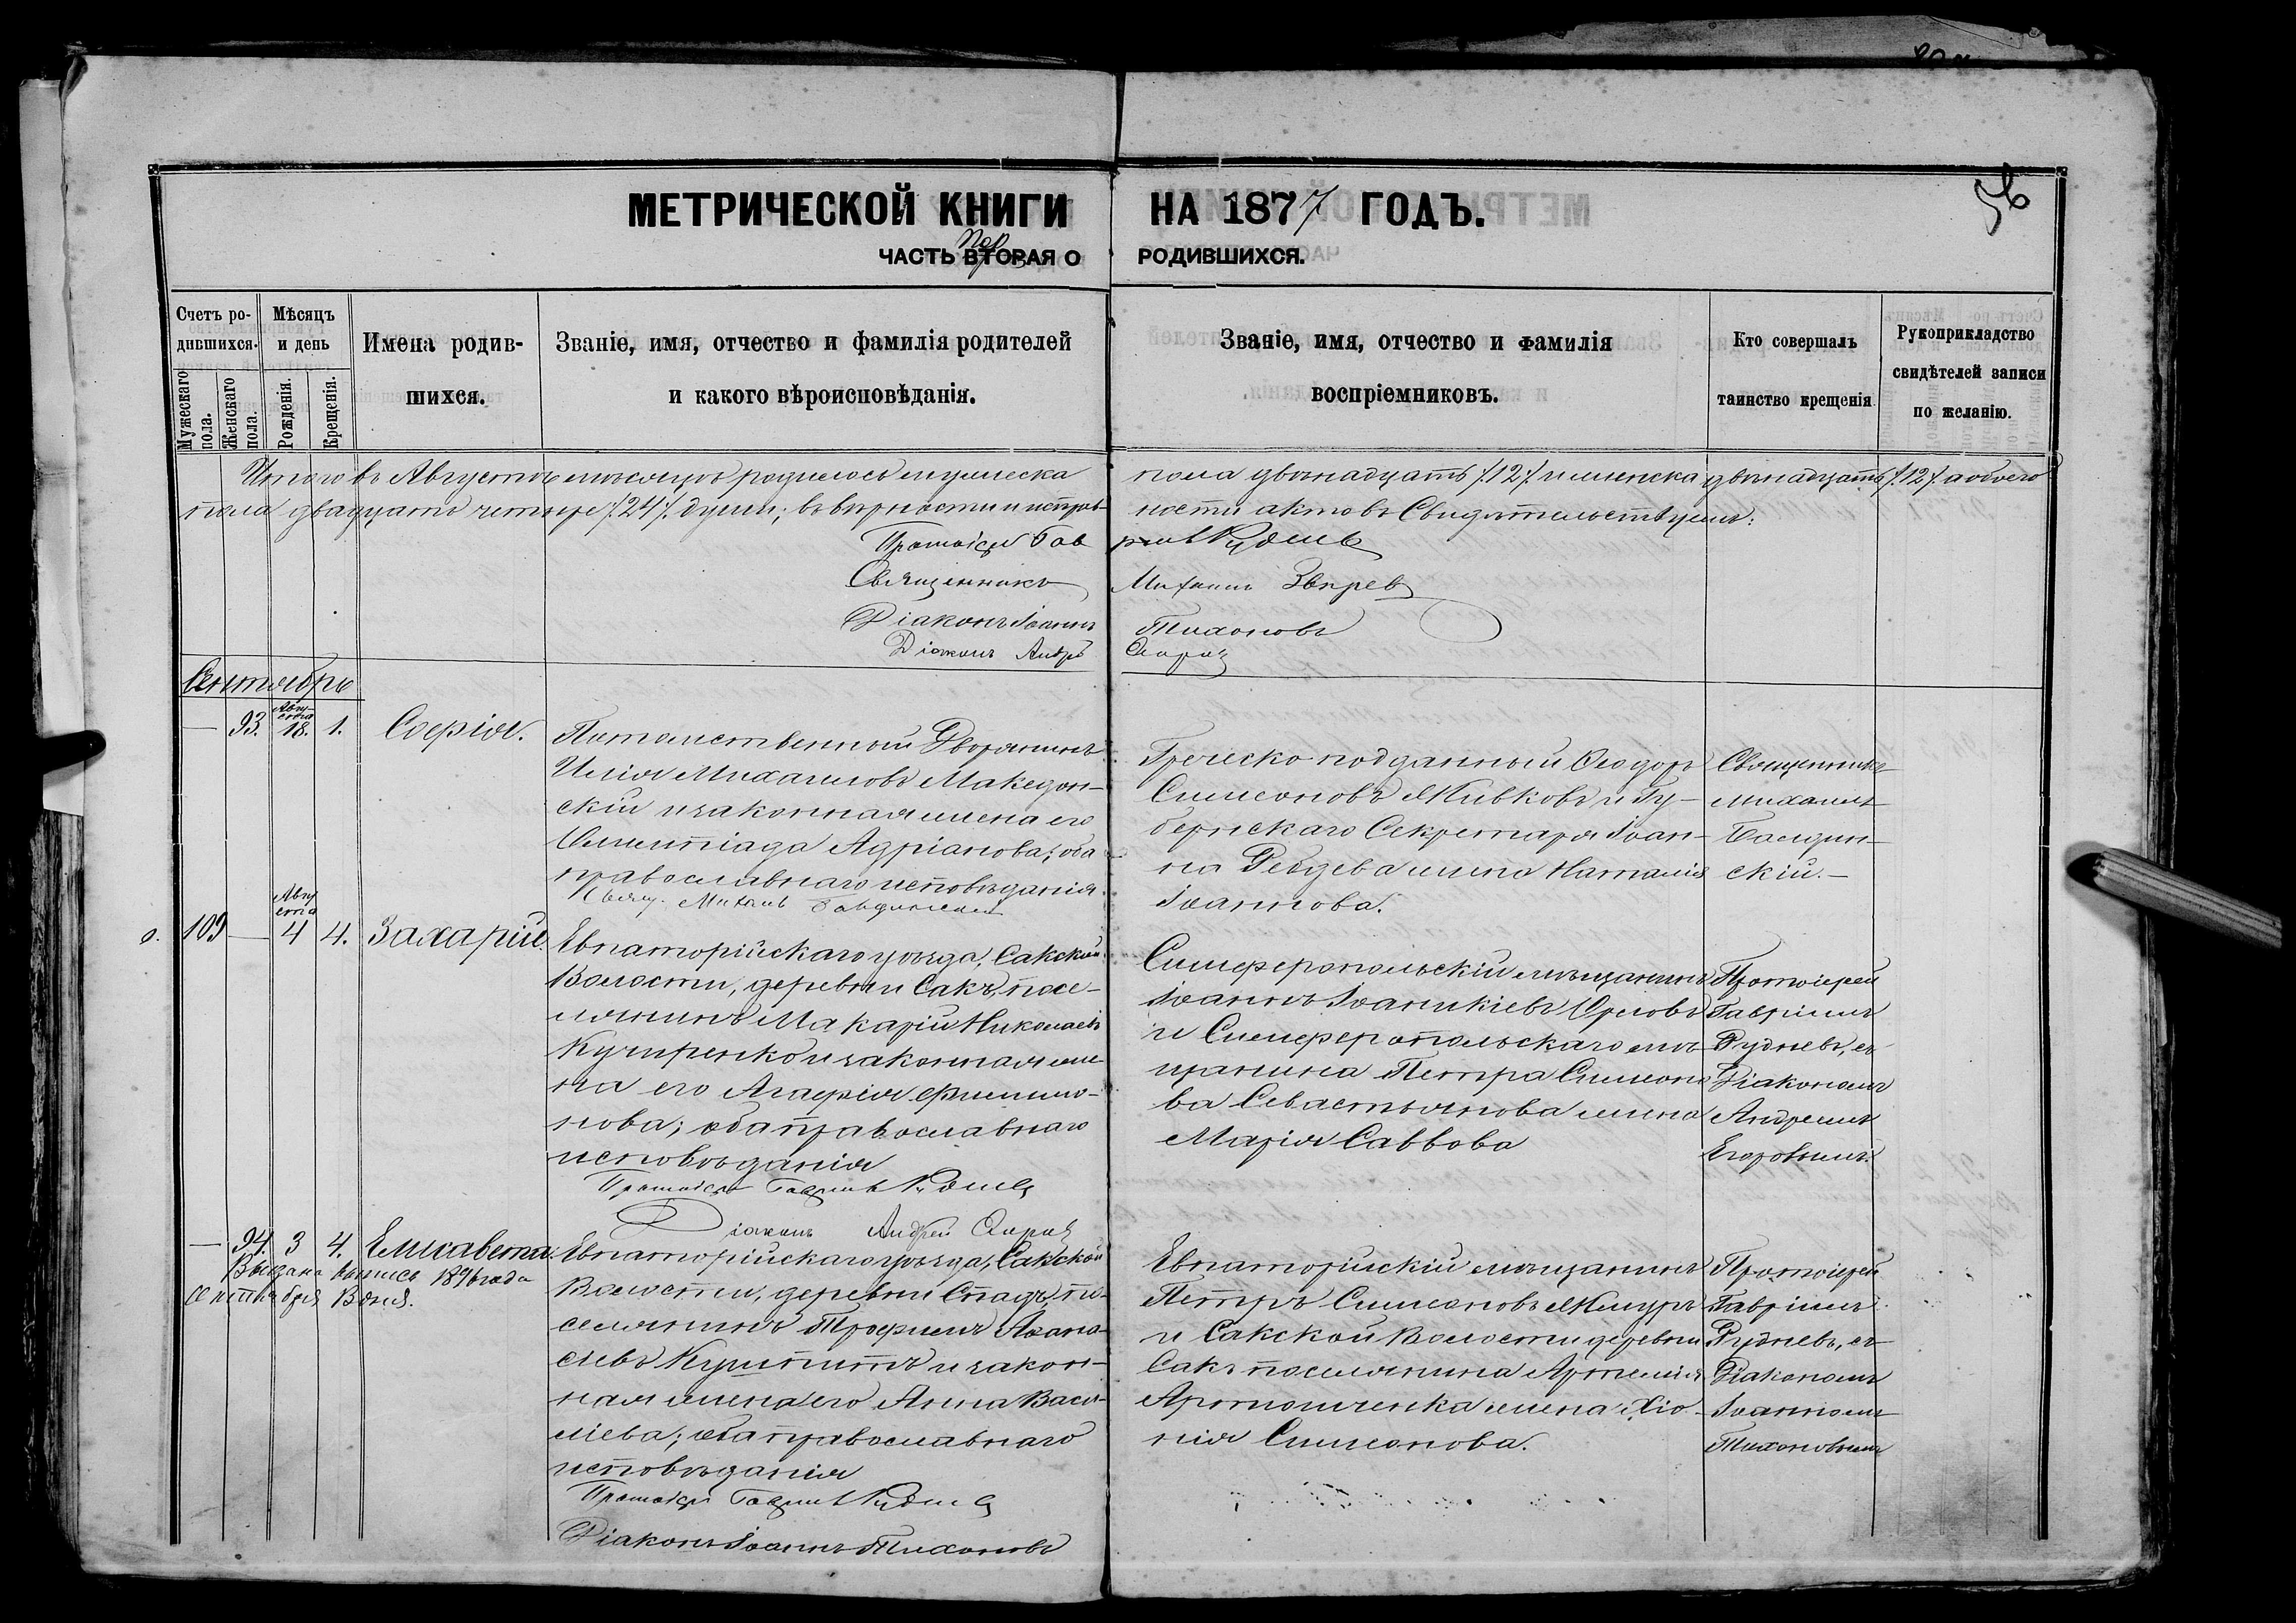 МЕТРИЧЕСКОЙ КНИГИ НА 1877 ГОДЪ.
56
ЧАСТЬ ВТОРАЯ О РОДИВШИХСЯ.
Пер
Счетъ родившихся.
Мужескаго пола.
Женскаго пола.
Мѣсяцъ и день
Рожденія.
Крещенія.
Имена родившихся.
Званіе, имя, отчество и фамилія родителей
и какого вѣроисповѣданія.
Званіе, имя, отчество и фамилія
воспріемниковъ.
Кто совершалъ
таинство крещенія
Рукоприкладство
свидѣтелей записи
по желанію.
Итого въ Августѣ мѣсяцѣ родилось мужеска пола двѣнадцать /.12./ и женска двѣнадцать /.12./ а обоего
пола двадцать четыре /.24/. души; въ вѣрности и исправности актовъ Свидѣтельствуемъ:
Протоіерей Гавріилъ Рудневъ
Священникъ Михаилъ Звѣревъ
Діаконъ Іоаннъ Тихоновъ
Діаконъ Андрей
Сентябрь
— 93. Августа 18. 1. Софія.
Потомственный Дворянинъ
Илія Михаиловъ Македон-
скій и законная жена его
Олимпіада Адріанова; оба
православнаго исповѣданія.
Свящ. Михаилъ
Греческо подданный Ѳеодоръ
Симеоновъ и Гу-
бернскаго Секретаря Іоан-
на жена Наталія
Іоаннова.
Священникъ
Михаилъ
скій.—
109 — Августа 4 4. Захарій.
Евпаторійскаго уѣзда, Сакской
Волости, деревни Сакъ, посе-
лянинъ Макарій Николаевъ
и законная же-
на его Агафія Филимо-
нова; оба православнаго
исповѣданія
Протоіерей Гавріилъ Рудневъ
Діаконъ Андрей
Симферопольскій мѣщанинъ
Іоаннъ Іоаникіевъ Орловъ
и Симферопольскаго мѣ-
щанина Петра Симеоно
ва Севастьянова жена
Марія Саввова
Протоіерей
Гавріилъ
Рудневъ, съ
Діакономъ
Андреемъ
— 94. 3 4. Елисавета.
Выдана выпись 1896 года
Сентября 13 дня.
Евпаторійскаго уѣзда, Сакской
Волости, деревни по-
селянинъ Трофимъ Аѳана-
сіевъ и закон-
ная жена его Анна Васи-
ліева; оба православнаго
исповѣданія
Протоіерей Гавріилъ Рудневъ
Діаконъ Іоаннъ Тихоновъ
Евпаторійскій мѣщанинъ
Петръ Симеоновъ
и Сакской Волости деревни
Сакъ поселянина Артемія
жена Хіо-
нія Симеонова.
Протоіерей
Гавріилъ
Рудневъ, съ
Діакономъ
Іоанномъ
Тихоновымъ